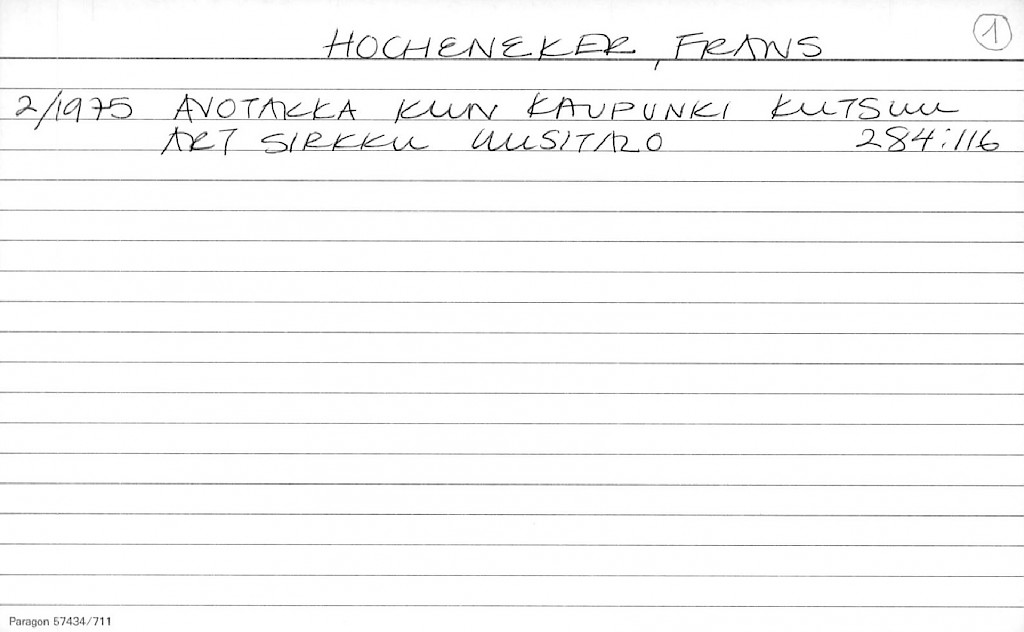 HOCHENEKER, FRANS
1
2/1975 AVOTAKKA KUN KAUPUNKI KUTSUU
ART SIRKKU UUSITALO 284:116
Paragon 57434/711